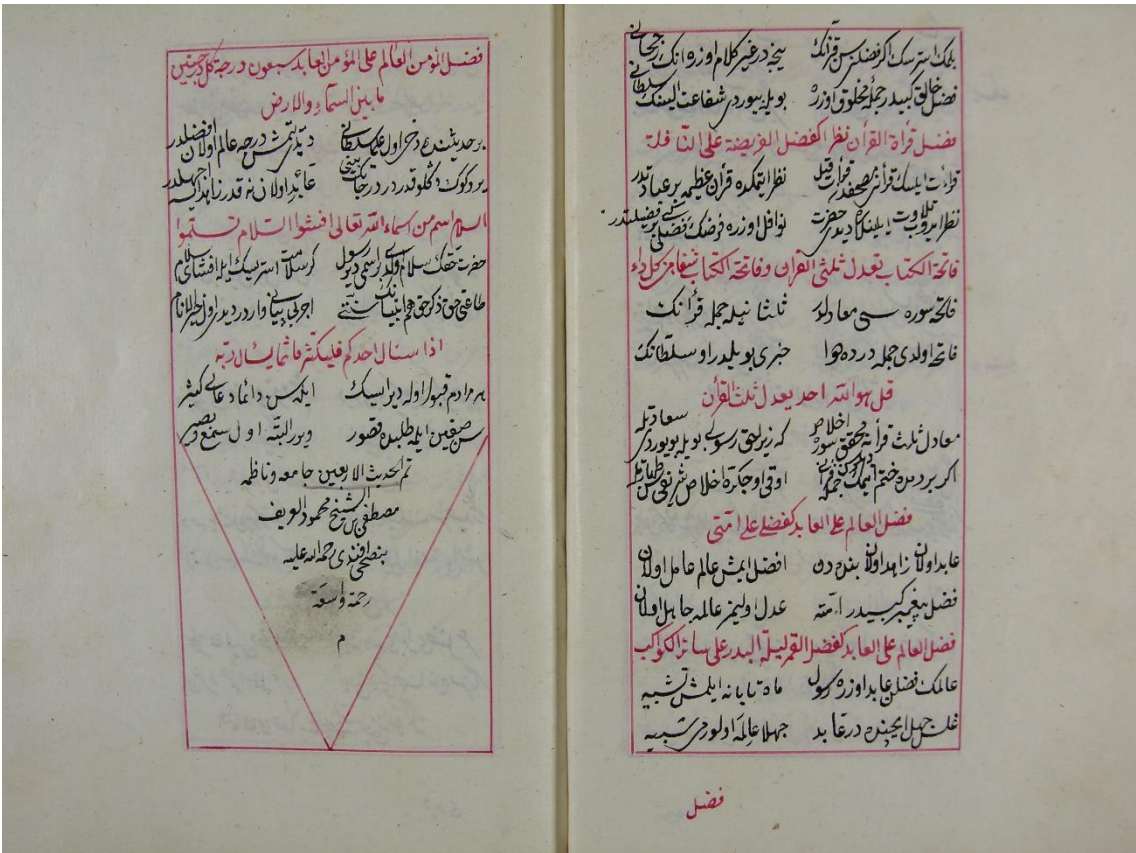 بلمك استرسك اكر فضلن سن قرآنك نيجه در غير كلام اوزره انك رجحانى
فضل خالق كبيدر جملهٔ مخلوق اوزره بويله بيوردى شفاعت ايلينك سلطانى
فضل قرأة القرأن نظرا كفضل الفريضة على النافلة
قرائت ايلسك قرآنى مصحفدن قرائت قيل نظر ايتمكده قرآن عظيمه بر عبادتدر
نظر ايدوب تلاوت ايلينكا ديدى حضرت نوافل اوزره فرضك فضلى
فاتحة الكتاب تعدل ثلثى القرأن وفاتحة الكتاب شفا من كل داء
فاتحه سوره سى معادلدر ثلثانيله جمله قرأنك
فاتحه اولدى جمله درده دوا خبرى بويلدر او سلطانك
قل هو الله احد يعدل ثلث القرأن
معادل ثلث قرأنه محقق سورهٔ اخلاص كه زيرا حق رسولى بويله بيوردى سعادتله
اكر بردمده ختم ايتمك جمله قرآنى اوقى اوچ كره اخلاص شريفى
فضل العالم على العابد كفضلى على امتى
عابد اولان زاهد اولان بنده دن افضل ايمش عالم عامل اولان
فضل پيغمبر كبيدر امته عدل اوليمز عالمه جاهل اولان
فضل العالم على العابد كفضل القمر ليلة البدر على سائر الكواكب
عالمك فضلن عابد اوزره رسول ماه تابانه ايلمش تشبيه
جهل ايچنده در عابد جهلا عالمه اولورمى شبيه
فضل
فضل المؤمن العالم على المؤمن العابد سبعون درجة كل درجتين
ما بين السماء والارض
بر حديثنده دخى اول علم سلطانى ديدى يتمش درجه عالم اولان افضلدر
ير و كوك دكلو قدر در درجاتك بينى عابد اولان نه قدر زاهد ايسه
السلام اسم من اسماء الله تعالى افشوا السلام تسلموا
حضرت حقك سلام اولدى بر اسمى دير رسول كر سلامت استرسيك ايله افشاى سلام
طاعتى حق ذكر حق هم اجر بى پايانى واردر ديدى اول خير الانام
اذا سئال احدكم فليكثر فانما يسئال ربه
هر مرادم قبول اوله ديرايسيك ايله سن دائما دعايى كثير
سن صقين ايلمه طلبده قصور ويرر البته اول سميع و بصير
تم الحديث الاربعين جامعه وناظمه
مصطفى بن الشيخ محمود
بنصحى افندى رحمة الله عليه
رحمة واسعة
م